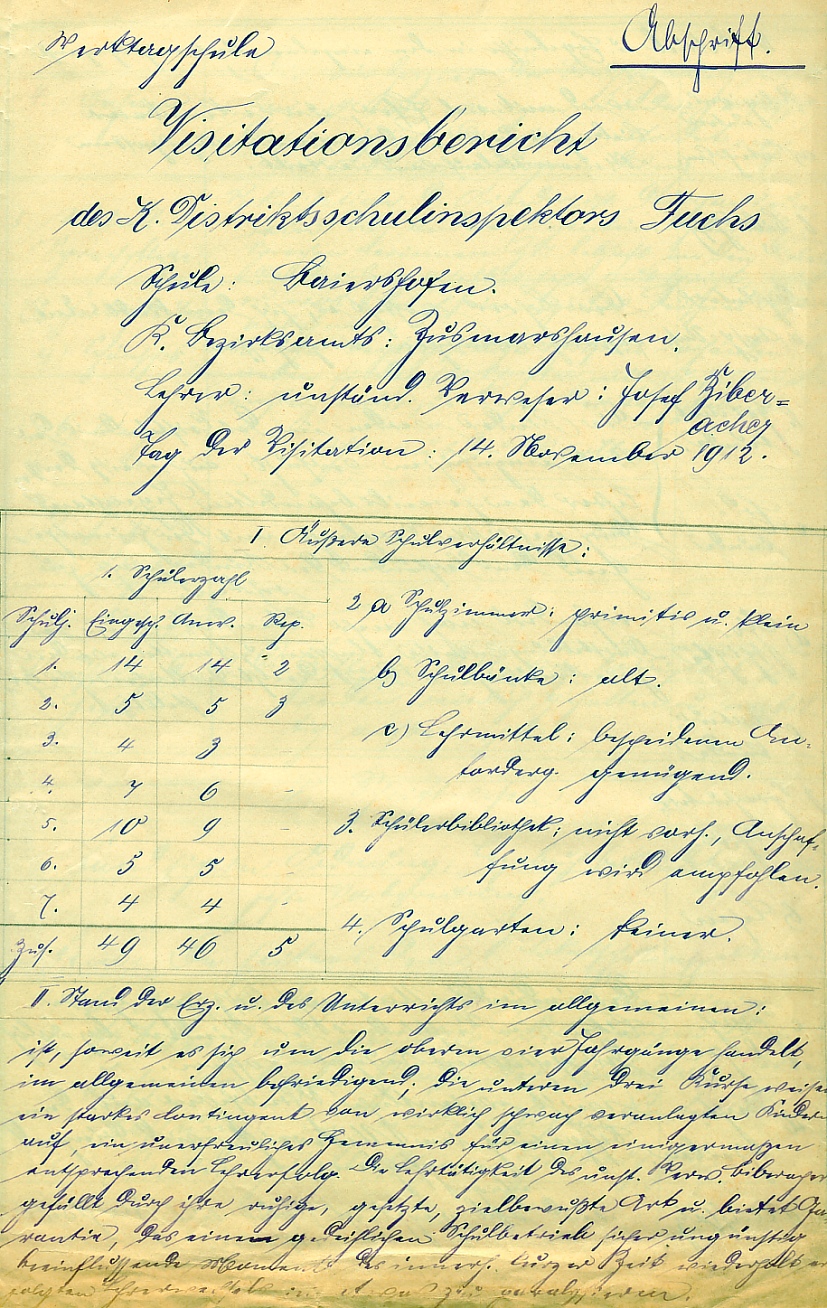 Werktagschule
Abschrift.
Visitationsbericht
des K. Distriktsschulinspektors Fuchs
Schule: Baiershofen.
K. Bezirksamts: Zusmarshausen.
Lehrer: unständ. Verweser: Josef Biber=
acher
Tag der Visitation: 14. November 1912.
I Äußere Schulverhältnisse:
1. Schülerzahl
Schulj. Eingesch. Anw. Rep.
1. 14 14 2
2. 5 5 3
3. 4 3 -
4. 7 6 -
5. 10 9 -
6. 5 5 -
7. 4 4 -
Zus. 49 46 5
2 a Schulzimmer: primitiv u. klein
b) Schulbänke: alt.
c) Lehrmittel: bescheidenen An-
forderg. genügend.
3. Schülerbibliothek: nicht vorh., Anschaf-
fung wird empfohlen.
4. Schulgarten: keiner.
II. Stand der Erz. u. des Unterrichts im allgemeinen:
ist, soweit es sich um die oberen vier Jahrgänge handelt,
im allgemeinen befriedigend; die unteren drei Kurse weisen
ein starkes Contingent von wirklich schwach veranlagten Kindern
auf, ein unerfreuliches Hemmnis für einen einigermaßen
entsprechenden Lehrerfolg. Die Lehrtätigkeit des unst. Verw. Biberacher
gefällt durch ihre ruhige, gesetzte, zielbewußte Art u. bietet Ga-
rantie, das einem gedeihlichen Schulbetrieb sicher ungünstig
beeinflussende Moment des innerh. kurzer Zeit wiederholt er-
folgten Lehrerwechsels in etwas zu paralysieren.